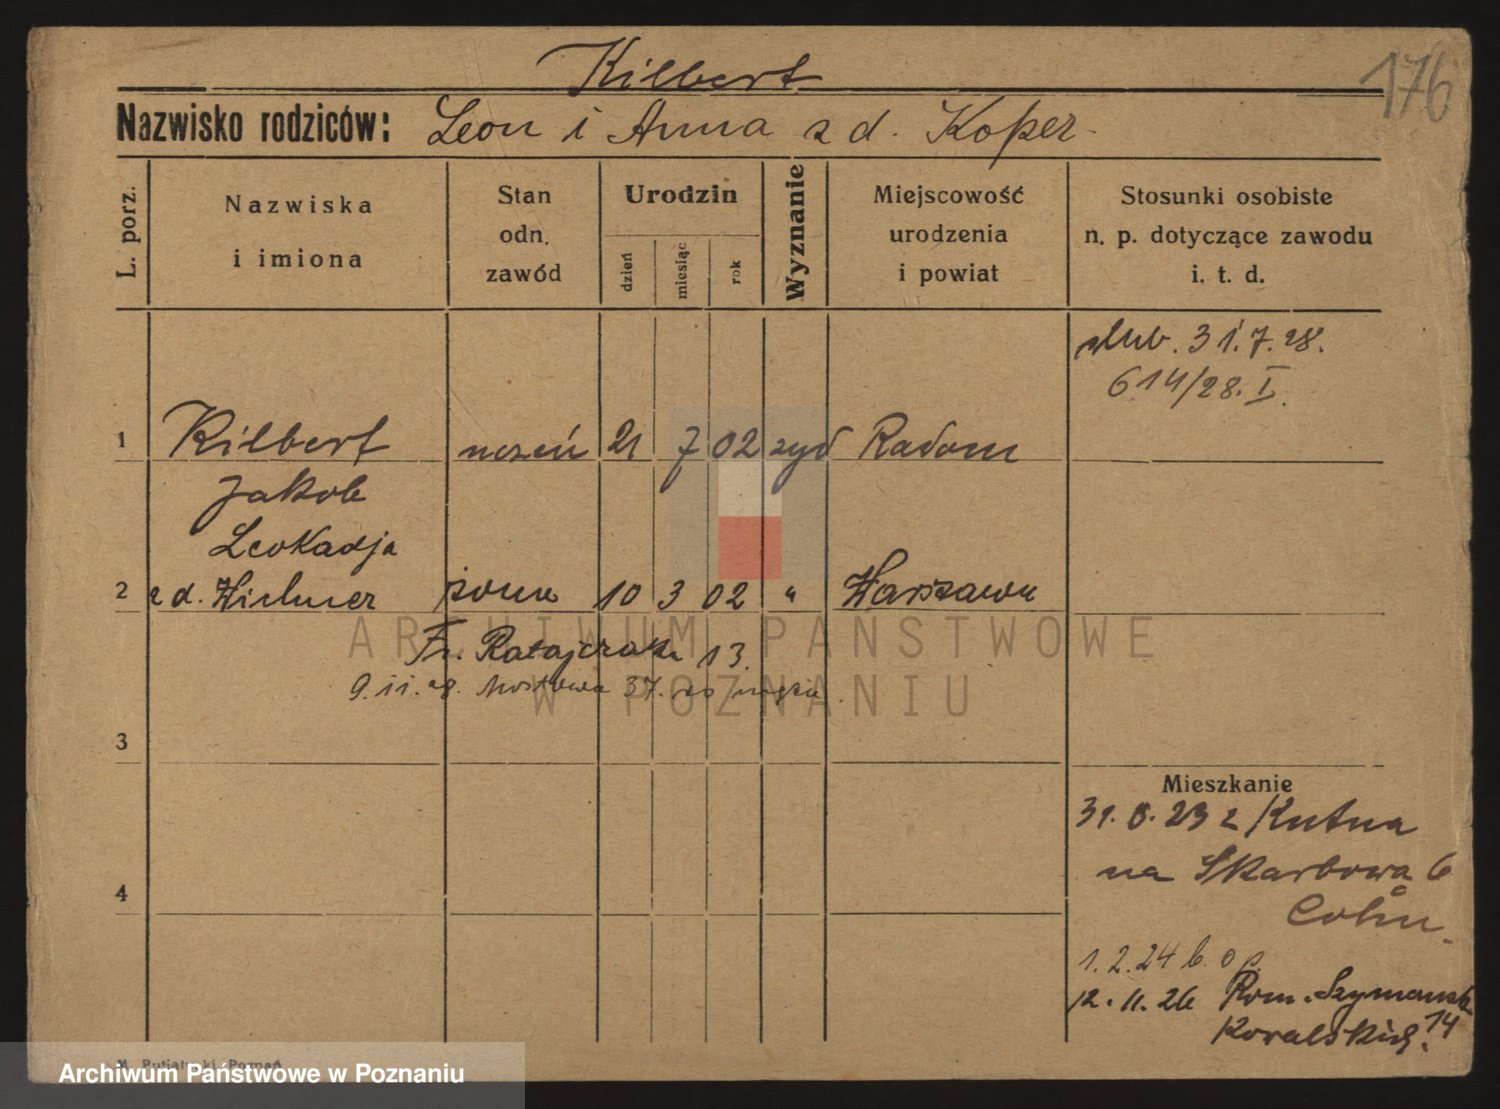 Kilbert
176
Nazwisko rodziców: Leon i Anna z d. Koper
L. porz.
Nazwiska
i imiona
Stan
odn.
zawód
Urodzin
dzień
miesiąc
rok
Wyznanie
Miejscowość
urodzenia
i powiat
Stosunki osobiste
n. p. dotyczące zawodu
i. t. d.
ślub. 31.7.28.
614/28. I.
1 Kilbert uczeń 21 7 02 żyd Radom
Jakob
Leokadja
2 z d. Wichner żona 10 3 02 " Warszawa
Fr. Ratajczaka 13.
9.11.28. Mostowa 37. do męża.
3
Mieszkanie
31.8.23 z Kutna
na Skarbowa 6
Cohn.
4
1.2.24 b. o p.
12.11.26 Rom. Szymańsk
Kowalskich. 14
ARCHIWUM PAŃSTWOWE
W POZNANIU
Archiwum Państwowe w Poznaniu